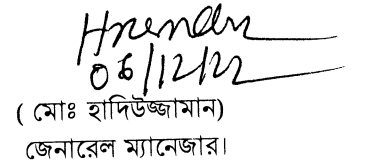 06/12/22
( মোঃ হাদিউজ্জামান)
জেনারেল ম্যানেজার।